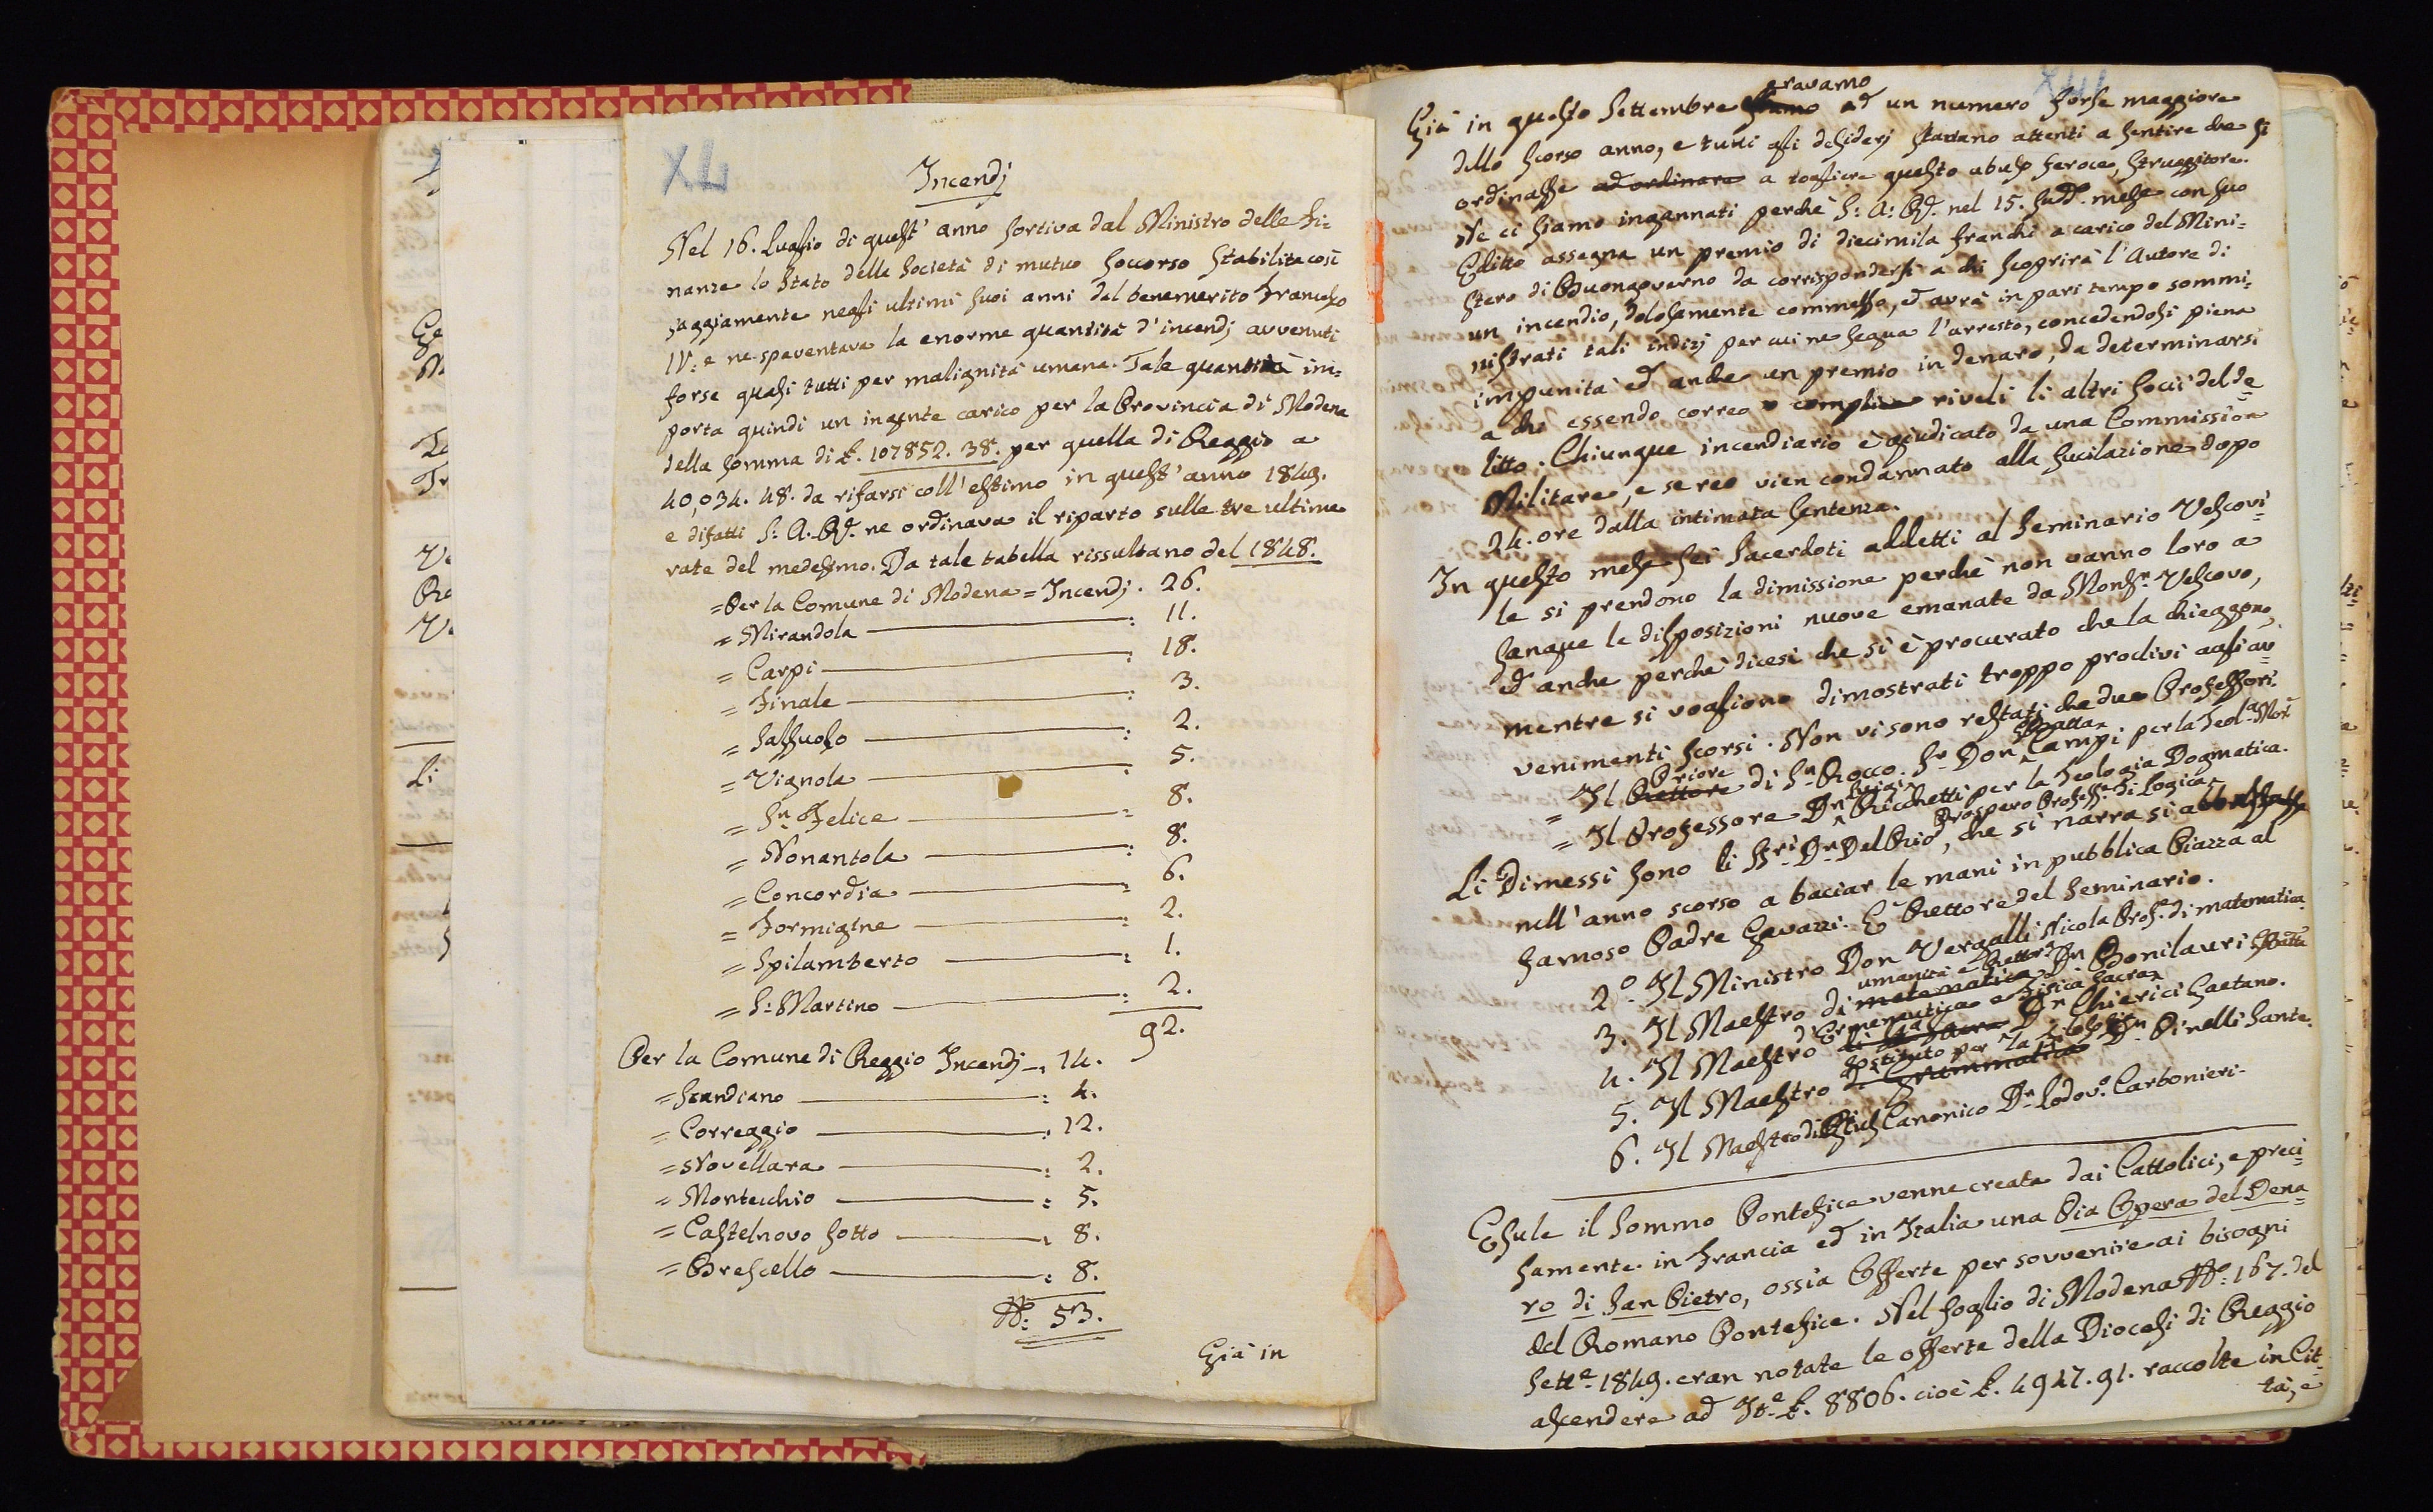 XL
Incendj
Nel 16. Luglio di quest' anno sortiva dal Ministro delle Fi=
nanze lo Stato della Società di mutuo Soccorso stabilita così
saggiamente negli ultimi suoi anni dal benemerito Francesco
IV: e ne spaventava la enorme quantità d'incendj avvenuti
forse quasi tutti per malignità umana. Tale quantità im=
porta quindi un ingente carico per la Provincia di Modena
della somma di £. 107852. 38. per quella di Reggio a
40,034. 48. da rifarsi coll'estimo in quest'anno 1849.
e difatti S: A. R. ne ordinava il riparto sulle tre ultime
rate del medesimo. Da tale tabella rissultano del 1848.
=Per la Comune di Modena = Incendj. 26.
= Mirandola : 11.
= Carpi : 18.
= Finale : 3.
= Sassuolo : 2.
= Vignola : 5.
= Sn. Felice = 8.
= Nonantola : 8.
= Concordia : 6.
= Formigine : 2.
= Spilamberto : 1.
= S: Martino : 2.
92.
Per la Comune di Reggio Incendj : 14.
= Scandiano : 4.
= Correggio : 12.
= Novellara : 2.
= Montecchio : 5.
= Castelnovo Sotto : 8.
= Brescello : 8.
N°: 53.
Già in
XLI
eravamo
Già in questo Settembre siamo ad un numero forse maggiore
dello scorso anno, e tutti gli desiderj stavano attenti a sentire che si
ordinasse ad ordinare a togliere questo abuso feroce, struggitore.
Ne ci siamo ingannati perchè S: A: R. nel 15. sudd. mese con suo
Editto assegna un premio di diecimila franchi a carico del Mini=
stero di Buongoverno da corrispondersi a chi scoprirà l'Autore di
un incendio, dolosamente commesso, ed avrà in pari tempo sommi=
nistrati tali indizj per cui ne segua l'arresto, concedendosi piena
impunità ed anche un premio in denaro, da determinarsi
a chi essendo correo o complice riveli li altri socii del de=
litto. Chiunque incendiario è giudicato da una Commission
Militare, e se reo vien condannato alla fucilazione dopo
24. ore dalla intimata sentenza.
In questo mese sei Sacerdoti addetti al Seminario Vescovi=
le si prendono la dimissione perchè non vanno loro a
sangue le disposizioni nuove emanate da Monsr. Vescovo,
ed anche perchè dicesi che si è procurato che la chieggono,
mentre si vogliono dimostrati troppo proclivi agli av=
venimenti scorsi. Non vi sono restati che due Professori.
Priore Gbatta
= Il Rettore di Sn Rocco Sr Don Campi per la Teola Mor.
Luigi
= Il Professore Dn Ricchetti per la Teologia Dogmatica.
Prospero Profess.e di Logica
Li Dimessi sono li Sri. Dn. Del Rio, che si narra si
nell'anno scorso a baciar le mani in pubblica Piazza al
famoso Padre Gavazzi. È Rettore del Seminario.
2°. Il Ministro Don Vergalli Nicola Prof. di matematica.
umanità e Rettor.
3. Il Maestro di matematica Dn Bonilauri Gbatta
d'Ermeneutica e Fisica sacra
4. Il Maestro Dn Chierici Gaetano.
sostituto per la
5. Il Maestro di Grammatica Dn. Pinelli Sante.
6. Il Maestro di Canonico Dn. Lodov.° Carbonieri.
Esule il Sommo Pontefice venne creata dai Cattolici, e preci=
samente in Francia ed in Italia una Pia Opera del Dena=
ro di San Pietro, ossia Offerte per sovvenire ai bisogni
del Romano Pontefice. Nel foglio di Modena N°: 167. del
Sette. 1849. eran notate le offerte della Diocesi di Reggio
ascendere ad Ite £. 8806. cioè £. 4947. 91. raccolte in Cit=
tà, e